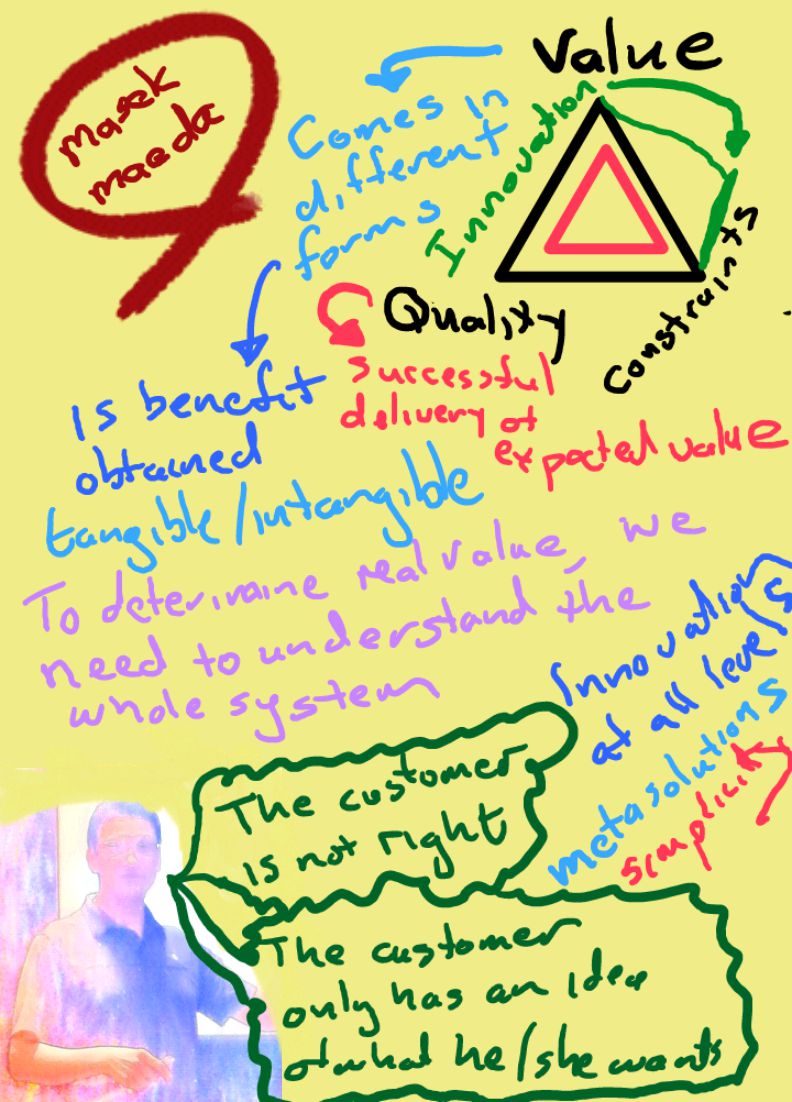 Masek
maeda
Value
Comes in
different
forms
Innovation
Constraints
Quality
is benefit
obtained
tangible/intangible
successful
delivery of
expected value
To determine real value, we
need to understand the
whole system
Innovation
at all levels
metasolutions
simplicity
The customer
is not right
The customer
only has an idea
of what he/she wants